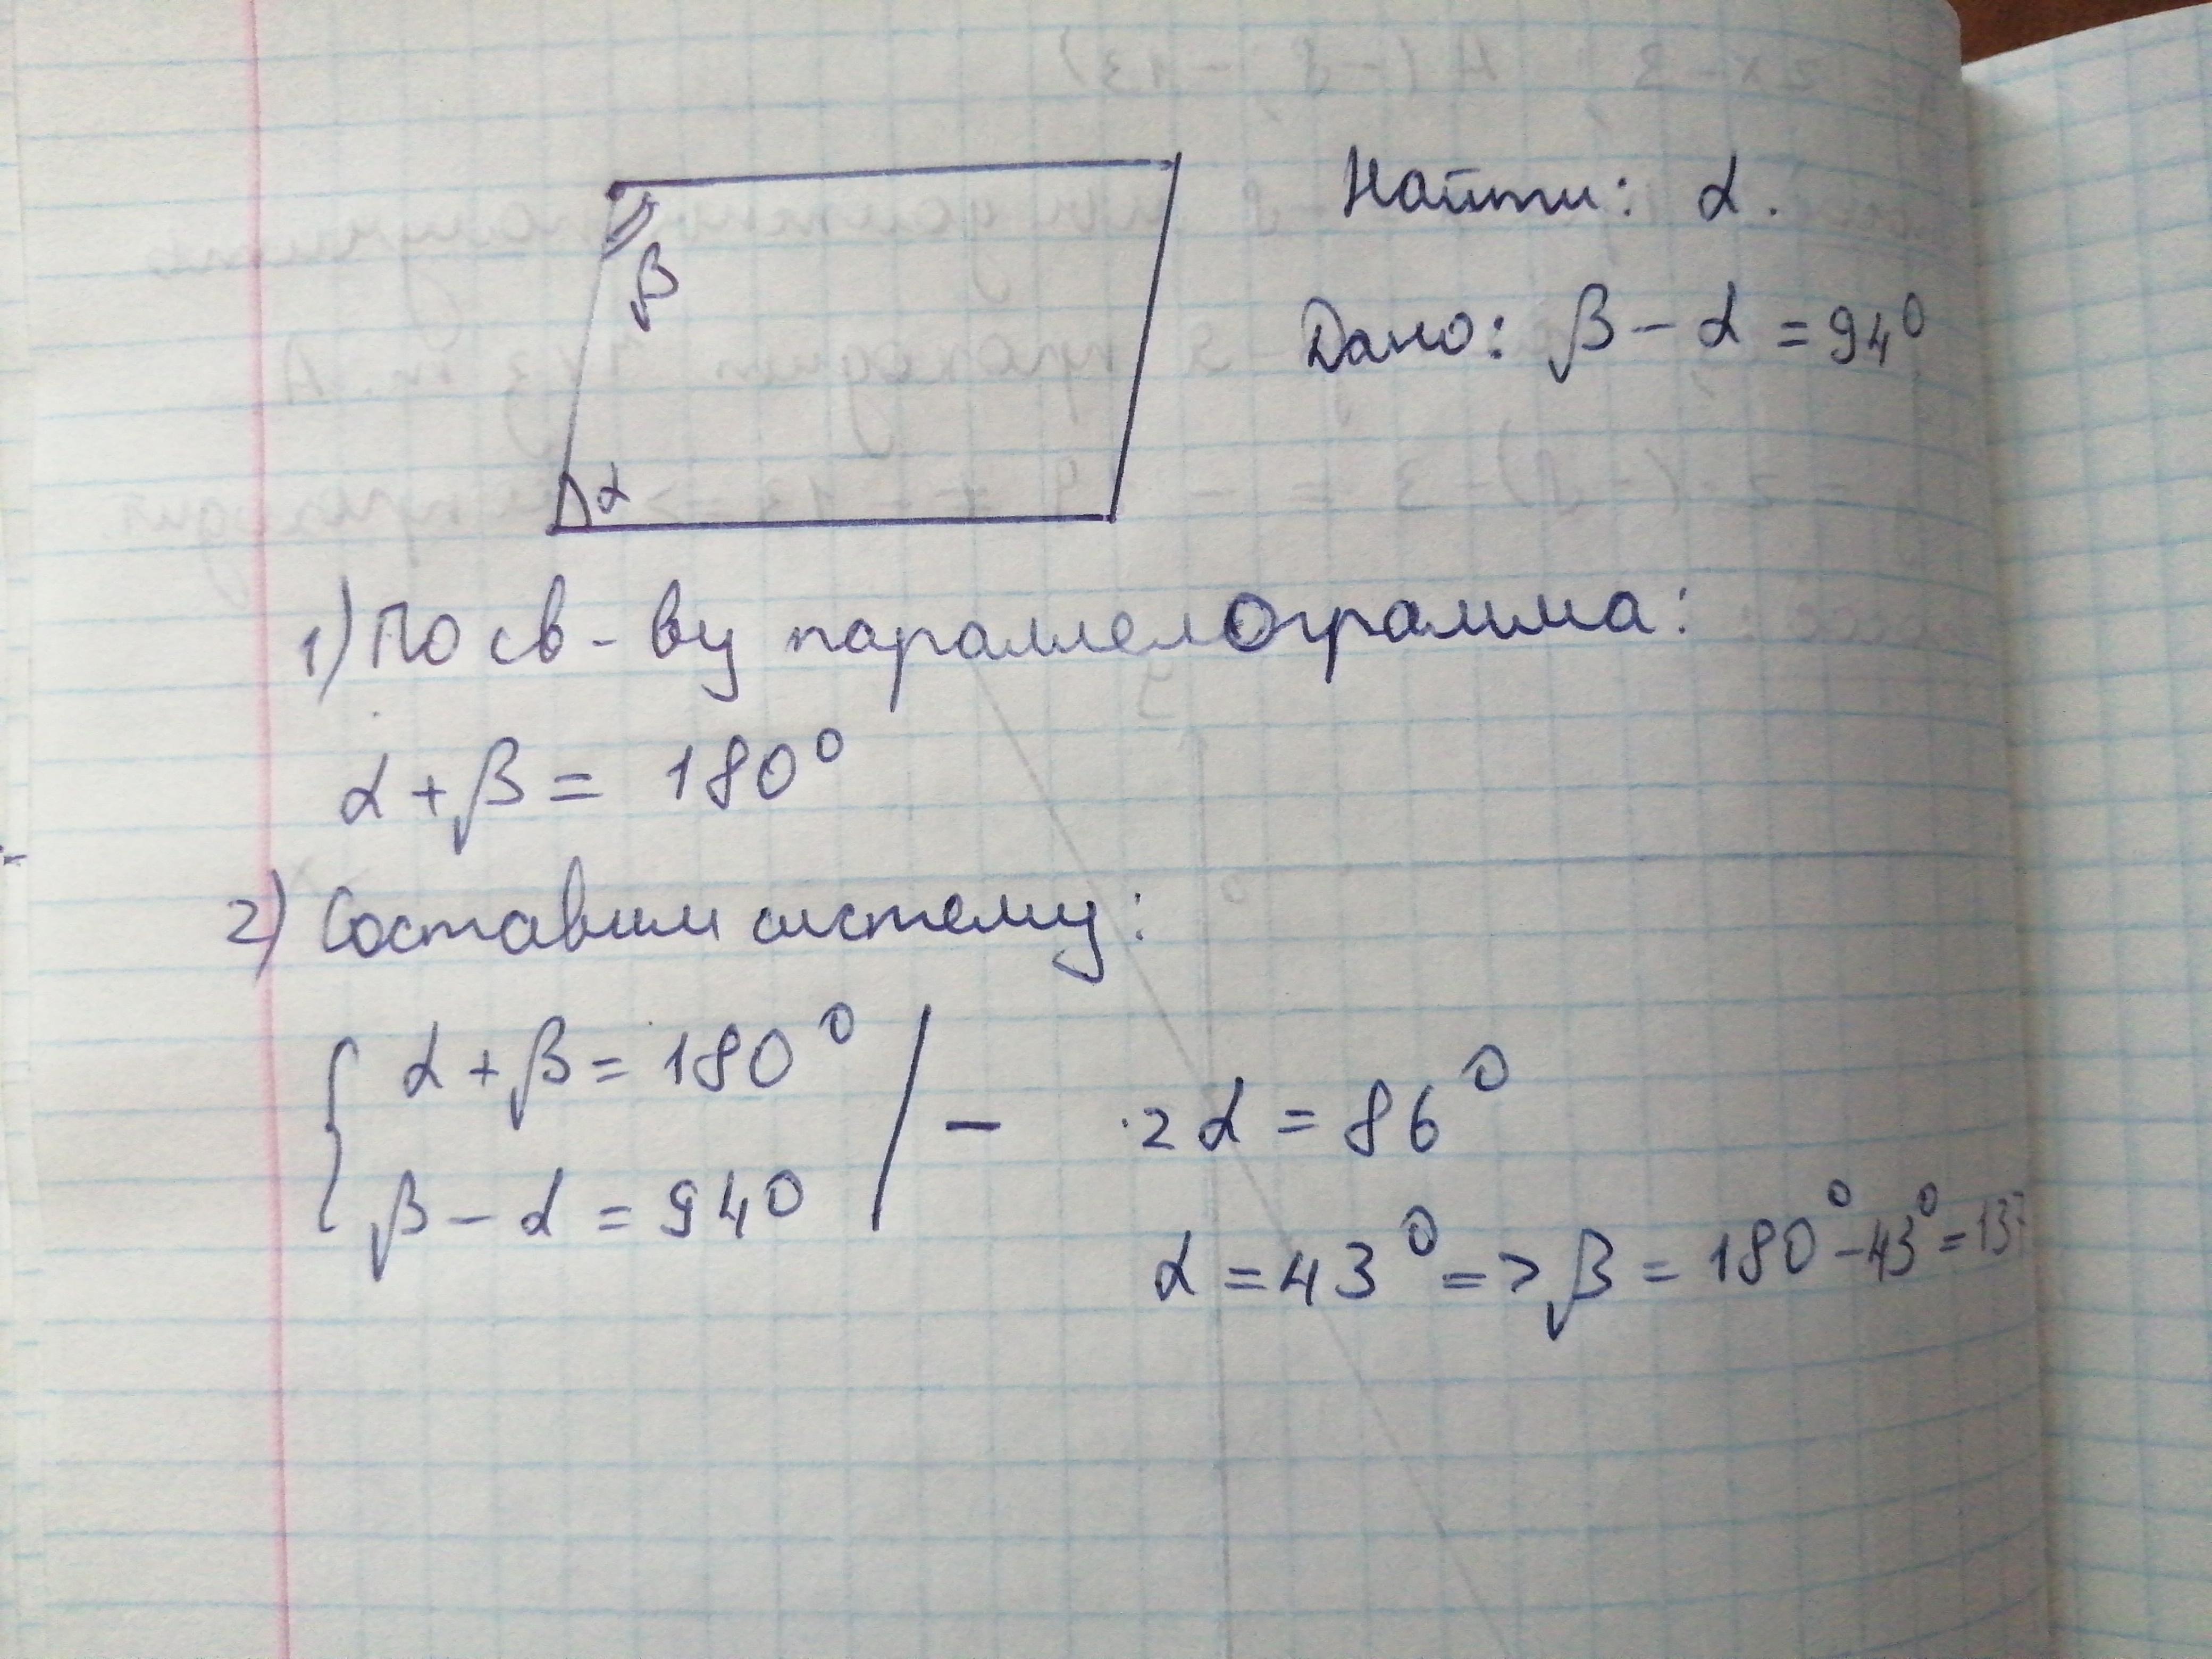 Найти: α.
β
Дано: β - α = 94⁰
α
1) По св-ву параллелограмма:
α + β = 180⁰
2) Составим систему:
α + β = 180⁰ / -
β - α = 940
2α = 86⁰
α = 43⁰ => β = 180⁰ - 43⁰ = 137